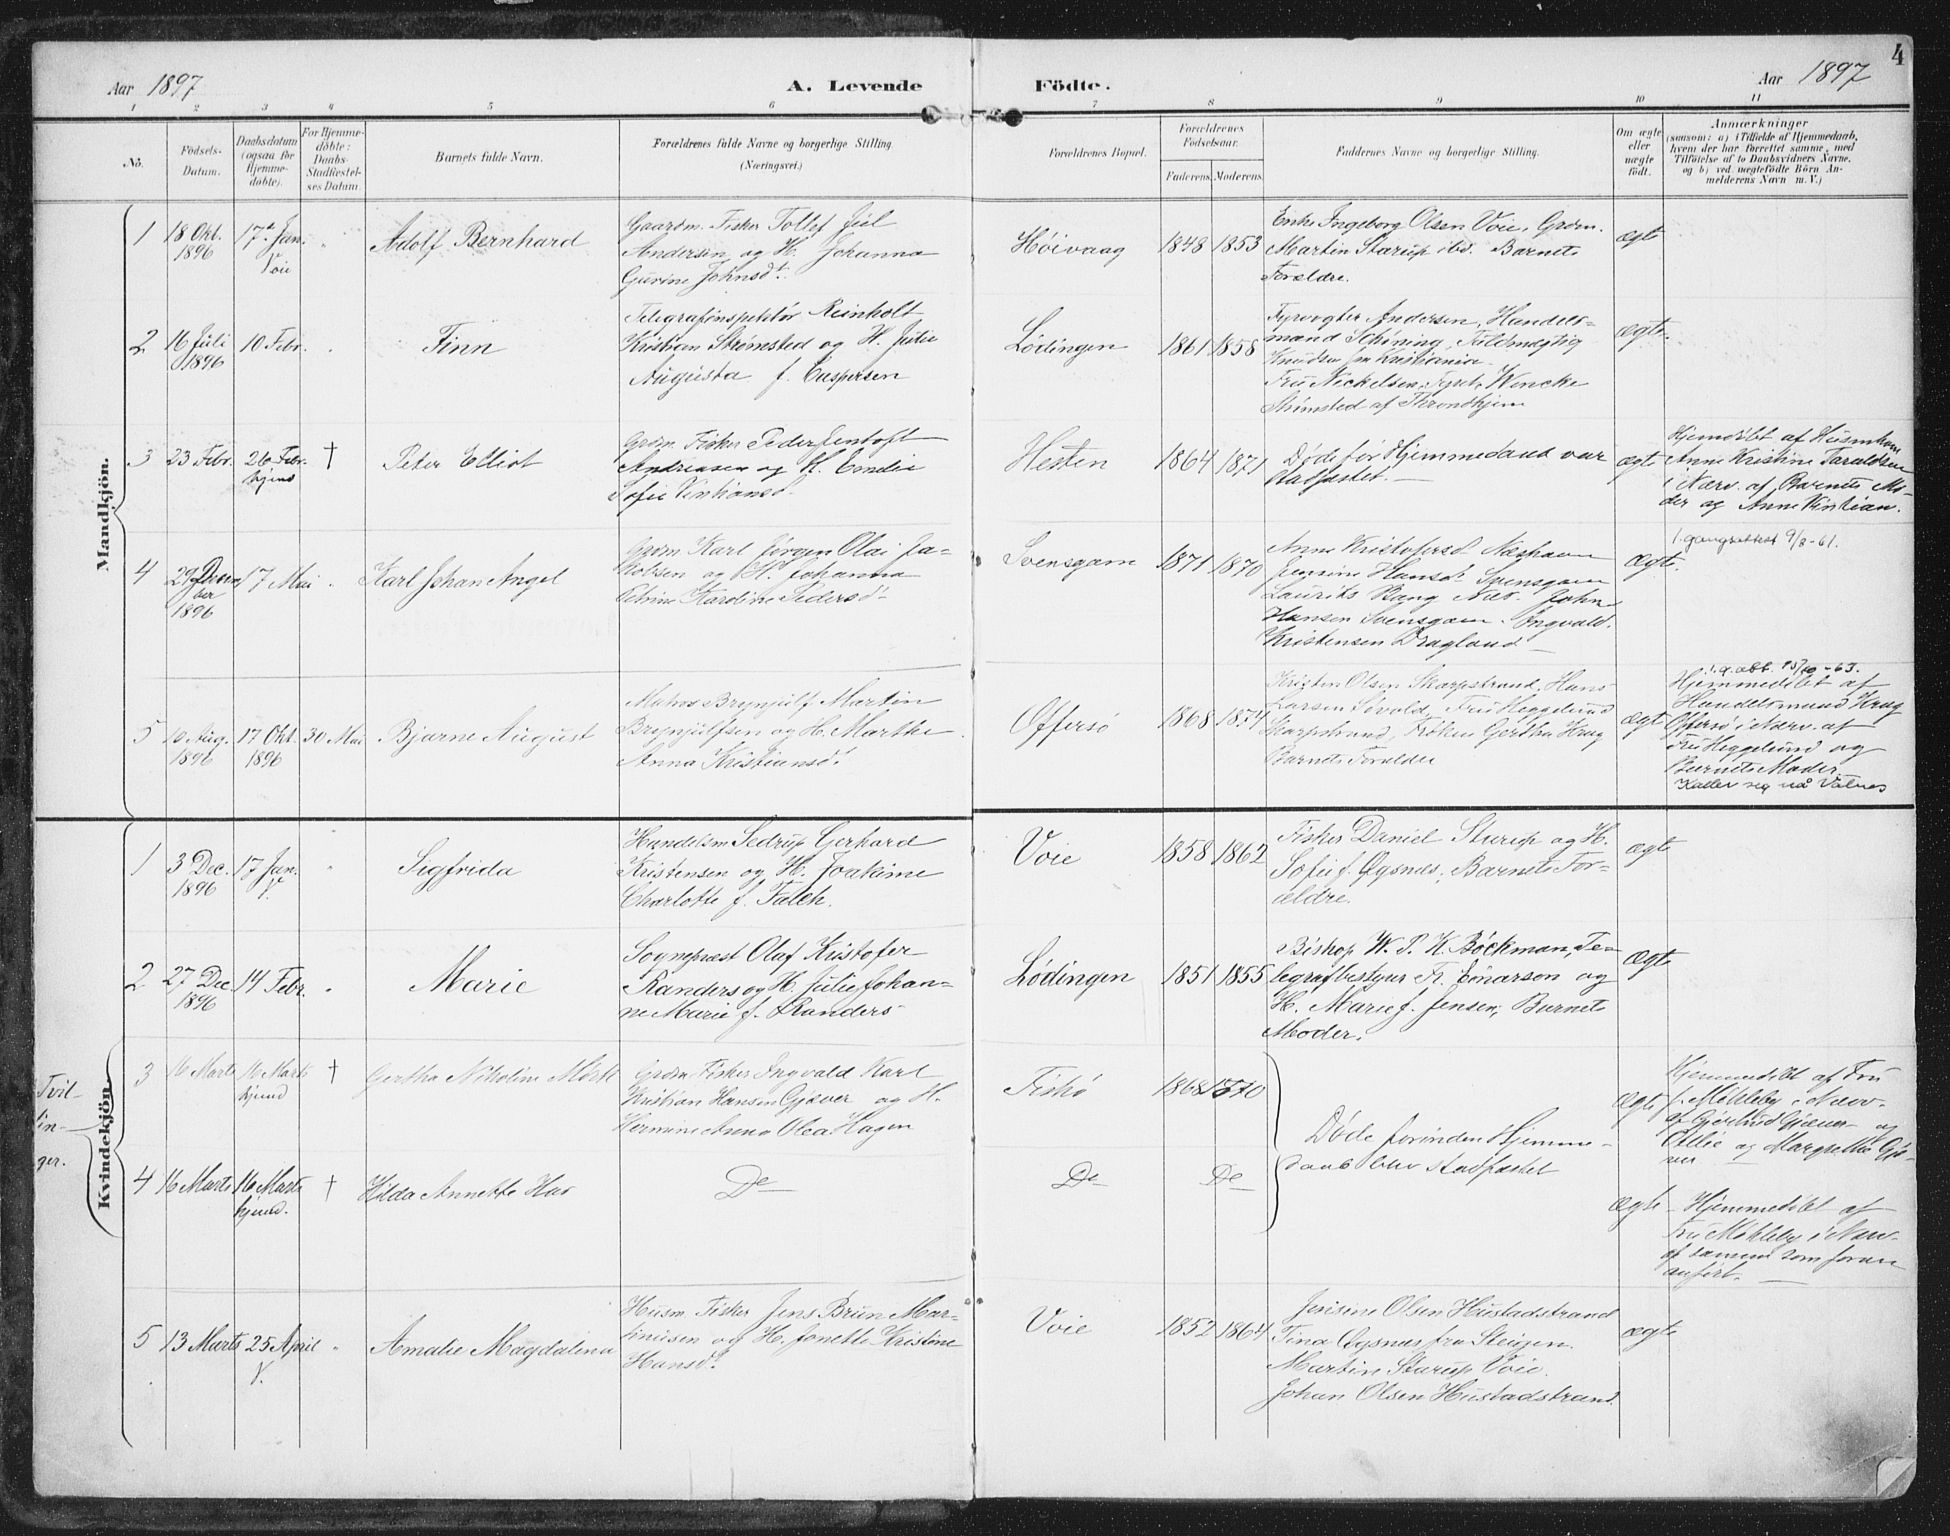 4
Aar 1897
A. Levende
Födte.
Aar 1897
1 2 3 4 5 6 7 8 9 10 11
No.
Födsels-
Datum.
Daabsdatum
(ogsaa for
Hjemme-
döbte).
For Hjemme-
döbte:
Daabs-
Stadfæstel-
ses Datum.
Barnets fulde Navn.
Forældrenes fulde Navne og borgerlige Stilling.
(Næringsvei.)
Forældrenes Bopæl.
Forældrenes
Födselsaar.
Faderens. Moderens.
Faddernes Navne og borgerlige Stilling.
Om ægte
eller
uægte
födt.
Anmærkninger
(saasom: a) i Tilfælde af Hjemmedaab,
hvem der har forrettet samme, med
Tilföielse af to Daabsvidners Navne,
og b) ved uægtefödte Börn An-
melderens Navn m. V.)
Mandkjön.
1
18 Okt.
1896
17d Jan.
Voie
"
Adolf Bernhard
Gaardm. Fisker Tollef Juel
Andersen og H. Johanna
Gurine Johnsdt.
Høivaag
1848 1853
Enke Ingeborg Olsen Voie, Grdm.
Martin Starup ibd. Barnets
Forældre.
ægte
2
16 Juli
1896
10 Febr.
"
Finn
Telegrafinspektør Reinholt
Kristian Strømsted og H. Julie
Augusta f. Caspersen
Lødingen
1861 1858
Fyrvogter Andersen, Handels-
mand Schöning, Fuldmægtig
Knudsen fra Kristiania
Fru Neckelsen, Fyret, Wencke
Strømsted af Throndhjem
ægte.
3
23 Febr.
26 Febr.
hjem
†
Peter Elliot
Grdm. Fisker Peder Jentoft
Andreasen og H. Emilie
Sofie Kristiansd.
Hesten
1864 1871
Døde før Hjemmedaab var
stadfæstet. —
ægte
Hjemdøbt af Husmkone
Anne Kristine Taraldsen
i Nærv. af Barnets Mo-
der og Anne Kristian.
4
29 Decem
ber
1896
17 Mai
"
Karl Johan Angel
Grdm Karl Jørgen Olai Ja-
kobsen og H. Johanna
Petrine Karoline Pedersd.
Svensgam
1871 1870
Anne Kristofersd. Næshavn
Jensine Hansdt. Svensgam
Lauritz Bang Næs. John
Hansen Svensgam. Ingvald.
Kristensen Dragland —
ægte.
1. gangsattest 9/8-61.
5
10 Aug.
1896
17 Okt.
1896
30 Mai
Bjarne August
Matros Brynjulf Martin
Brynjulfsen og H. Marthe
Anna Kristiansdt
Offersø
1868 1874
Kristen Olsen Skarpstrand, Hans
Larsen Sevold, Fru Heggelund
Skarpstrand, Frøken Gertha Krog
Barnets Forældre
ægte
1. g. att. 15/10-63.
Hjemmedøbt af
Handelsmand Krog
Offersø i Nærv. af
Fru Heggelund og
Barnets Moder
Kaller seg nå Valnes
Kvindekjön.
1
3 Dec.
1896
17 Jan.
V.
"
Sigfrida
Handelsm Sedrup Gerhard
Kristensen og H. Joakime
Charlotte f. Falch.
Voie
1858 1862
Fisker Daniel Starup og H.
Sofie f. Øgsnes, Barnets For-
ældre.
ægte
2
27 Dec.
1896
14 Febr.
"
Marie
Sogneprest Olaf Kristofer
Randers og H. Julie Johan-
ne Marie f. Randers
Lødingen
1851 1855
Biskop W. P. K. Bøckman, Te-
legrafbestyrer Fr. Einarson og
H. Marie f. Jensen, Barnets
Moder.
ægte
Tvil-
lin-
ger.
3
16 Marts
16 Marts
hjemd
†
Gertha Nikoline Mørk
Grdm Fisker Ingvald Karl
Kristian Hansen Gjæver og H.
Hermine Anna Olea Hagen
Fiskø
1868 1870
Døde forinden Hjemme-
daab blev stadfæstet
ægte
Hjemmedøbt af Fru
f. Møkleby i Nærv.
af Gjertrud Gjæver og
Otilie og Margrethe Gjæ-
ver
4
16 Marts
16 Marts
hjemd.
†
Hilda Annette Hao
De
De
De
ægte
Hjemmedøbt af
Fru Møkleby i Nær-
af samme som foran
anført. —
5
13 Marts
25 April
V.
"
Amalie Magdalina
Husm Fisker Jens Brun Mar-
tinisen og H. Janette Kristine
Hansdt
Voie
1852 1864
Jensine Olsen Hustadstrand
Tina Øgsnæs fra Steigen.
Martin Starup Voie.
Johan Olsen Hustadstrand.
ægte